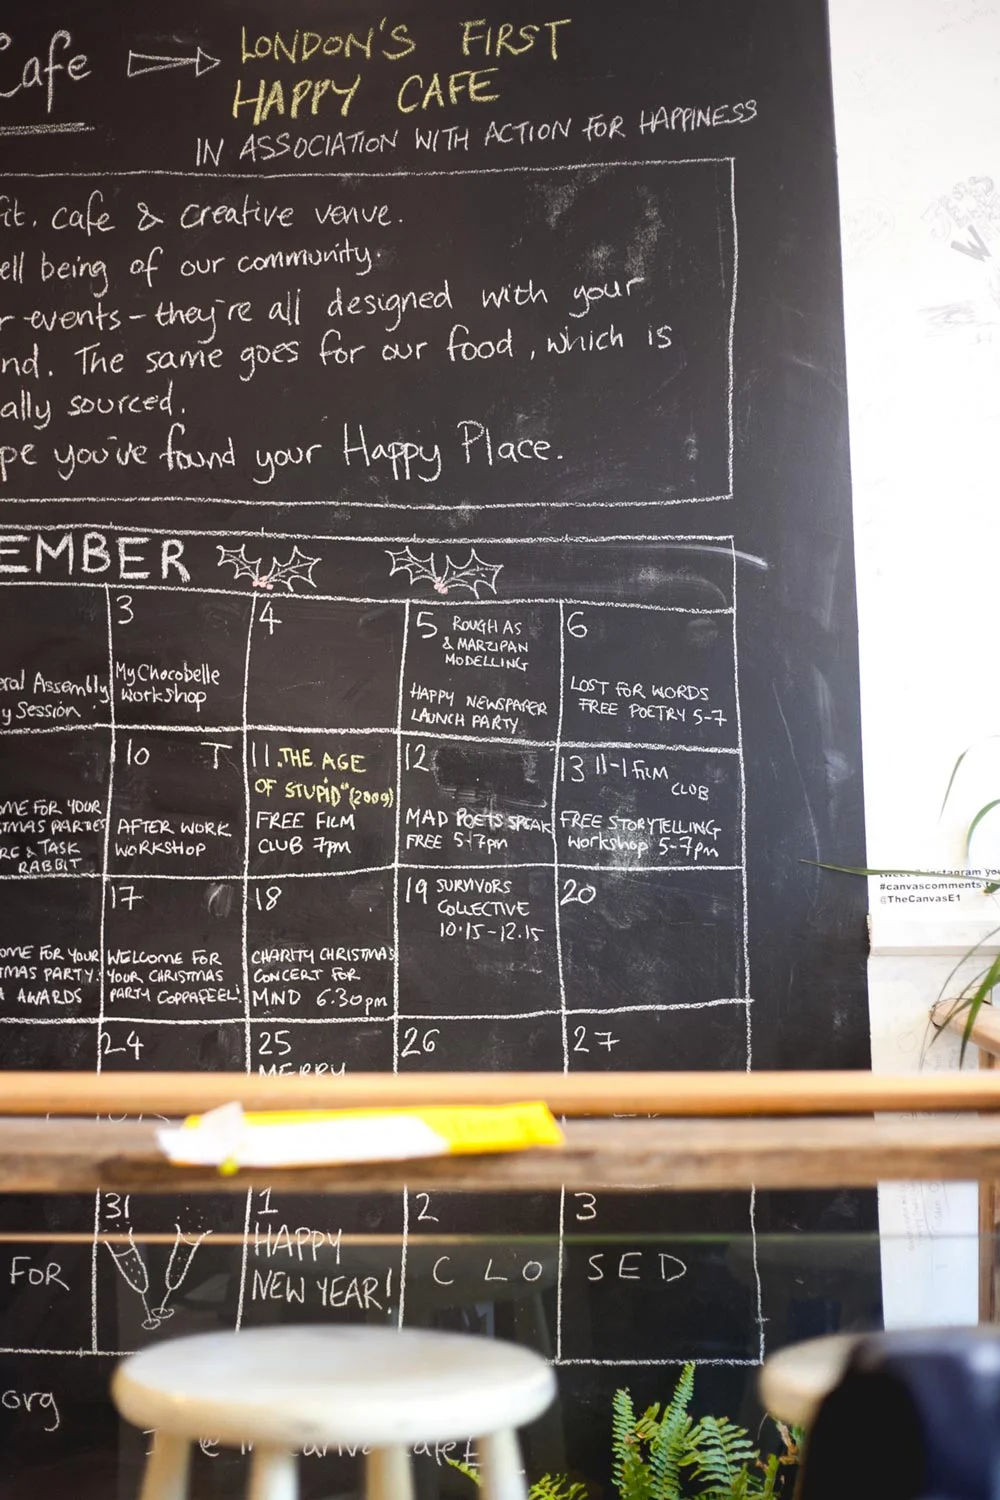 Cafe
LONDON'S FIRST
HAPPY CAFE
IN ASSOCIATION WITH ACTION FOR HAPPINESS
fit, cafe & creative venue.
ell being of our community.
r events - they're all designed with your
nd. The same goes for our food, which is
ally sourced.
pe you've found your Happy Place.
EMBER
eral Assembly
y Session
3
My Chocobelle
Workshop
4
5 ROUGH AS
& MARZIPAN
MODELLING
HAPPY NEWSPAPER
LAUNCH PARTY
6
LOST FOR WORDS
FREE POETRY 5-7
OME FOR YOUR
TMAS PARTIES
RE & TASK
RABBIT
10 T
AFTER WORK
WORKSHOP
11. THE AGE
OF STUPID" (2009)
FREE FILM
CLUB 7pm
12
MAD POETS SPEAK
FREE 5-7pm
13 11-1 FILM
CLUB
FREE STORYTELLING
Workshop 5-7pm
OME FOR YOUR
TMAS PARTY:
A AWARDS
17
WELCOME FOR
YOUR CHRISTMAS
PARTY COPPAFEEL!
18
CHARITY CHRISTMAS
CONCERT FOR
MIND 6.30pm
19 SURVIVORS
COLLECTIVE
10.15-12.15
20
24
25
MERRY
26
27
FOR
31
1
HAPPY
NEW YEAR!
2
3
CLOSED
org
#canvascomments
@TheCanvasE1